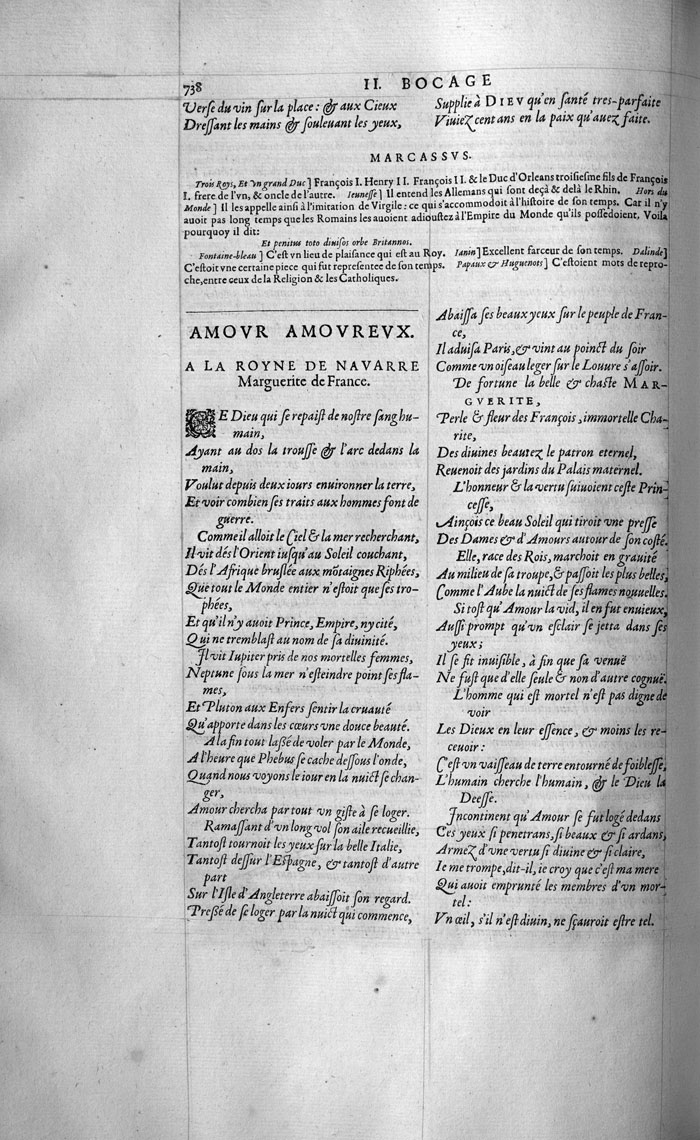 738
II. BOCAGE
Verse du vin sur la place : & aux Cieux
Dressant les mains & souleuant les yeux,
Supplie à DIEV qu'en santé tres-parfaite
Viuiez cent ans en la paix qu'auez faite.
MARCASSVS.
Trois Roys, Et vn grand Duc] François I. Henry II. François II. & le Duc d'Orleans troisiesme fils de François
I. frere de l'vn, & oncle de l'autre. Ieunesse] Il entend les Allemans qui sont deçà & delà le Rhin. Hors du
Monde] Il les appelle ainsi à l'imitation de Virgile : ce qui s'accommodoit à l'histoire de son temps. Car il n'y
auoit pas long temps que les Romains les auoient adioustez à l'Empire du Monde qu'ils possedoient. Voila
pourquoy il dit:
Et penitus toto diuisos orbe Britannos.
Fontaine-bleau] C'est vn lieu de plaisance qui est au Roy. Ianin] Excellent farceur de son temps. Dalinde]
C'estoit vne certaine piece qui fut representee de son temps. Papaux & Huguenots] C'estoient mots de repro-
che, entre ceux de la Religion & les Catholiques.
AMOVR AMOVREVX.
A LA ROYNE DE NAVARRE
Marguerite de France.
CE Dieu qui se repaist de nostre sang hu-
main,
Ayant au dos la trousse & l'arc dedans la
main,
Voulut depuis deux iours enuironner la terre,
Et voir combien ses traits aux hommes font de
guerre.
Comme il alloit le Ciel & la mer recherchant,
Il vit dés l'Orient iusqu'au Soleil couchant,
Dés l'Afrique bruslée aux mõtaignes Riphées,
Que tout le Monde entier n'estoit que ses tro-
phées,
Et qu'il n'y auoit Prince, Empire, ny cité,
Qui ne tremblast au nom de sa diuinité.
Il vit Iupiter pris de nos mortelles femmes,
Neptune sous la mer n'esteindre point ses fla-
mes,
Et Pluton aux Enfers sentir la cruauté
Qu'apporte dans les cœurs vne douce beauté.
A la fin tout lassé de voler par le Monde,
A l'heure que Phebus se cache dessous l'onde,
Quand nous voyons le iour en la nuict se chan-
ger,
Amour chercha par tout vn giste à se loger.
Ramassant d'vn long vol son aile recueillie,
Tantost tournoit les yeux sur la belle Italie,
Tantost dessur l'Espagne, & tantost d'autre
part
Sur l'Isle d'Angleterre abaissoit son regard.
Pressé de se loger par la nuict qui commence,
Abaissa ses beaux yeux sur le peuple de Fran-
ce,
Il aduisa Paris, & vint au poinct du soir
Comme vn oiseau leger sur le Louure s'assoir.
De fortune la belle & chaste MAR-
GVERITE,
Perle & fleur des François, immortelle Cha-
rite,
Des diuines beautez le patron eternel,
Reuenoit des jardins du Palais maternel.
L'honneur & la vertu suiuoient ceste Prin-
cesse,
Ainçois ce beau Soleil qui tiroit vne presse
Des Dames & d'Amours autour de son costé.
Elle, race des Rois, marchoit en grauité
Au milieu de sa troupe, & passoit les plus belles,
Comme l'Aube la nuict de ses flames nouuelles.
Si tost qu'Amour la vid, il en fut enuieux,
Aussi prompt qu'vn esclair se jetta dans ses
yeux;
Il se fit inuisible, à fin que sa venuë
Ne fust que d'elle seule & non d'autre cognuë.
L'homme qui est mortel n'est pas digne de
voir
Les Dieux en leur essence, & moins les re-
ceuoir :
C'est vn vaisseau de terre entourné de foiblesse,
L'humain cherche l'humain, & le Dieu la
Deesse.
Incontinent qu'Amour se fut logé dedans
Ces yeux si penetrans, si beaux & si ardans,
Armez d'vne vertu si diuine & si claire,
Ie me trompe, dit-il, ie croy que c'est ma mere
Qui auoit emprunté les membres d'vn mor-
tel:
Vn œil, s'il n'est diuin, ne sçauroit estre tel.